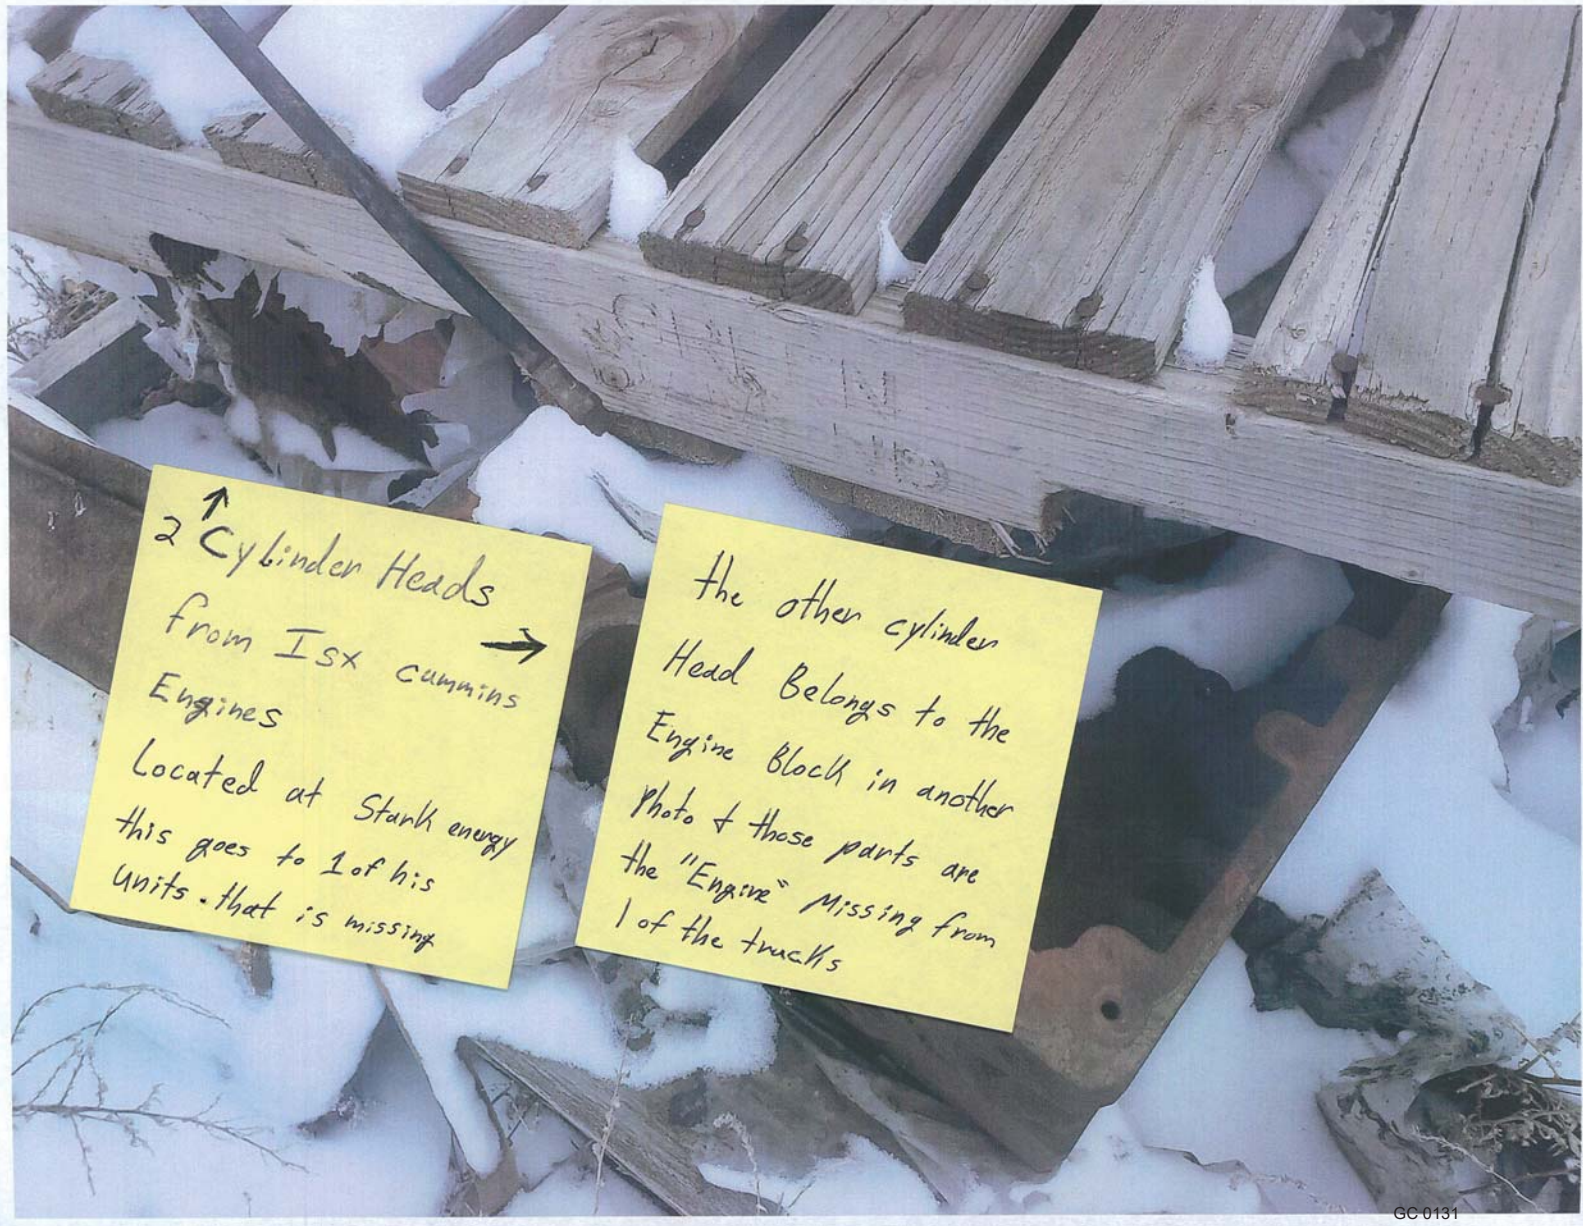 2 Cylinder Heads
from Isx cummins
Engines
Located at Stark energy
this goes to 1 of his
units. that is missing
the other cylinder
Head Belongs to the
Engine Block in another
photo & those parts are
the "Engine" Missing from
1 of the trucks
GC 0131